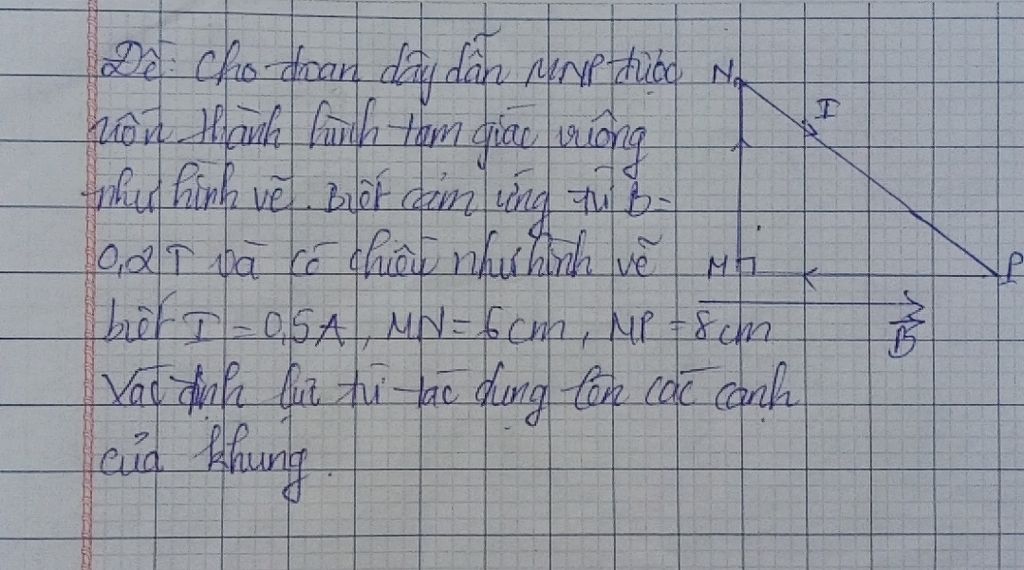 Đề: Cho đoạn dây dẫn MNP được
uốn thành hình tam giác vuông
như hình vẽ. Biết cảm ứng từ B =
0,2T và có chiều như hình vẽ
biết I = 0,5A, MN = 6cm, MP = 8cm
Xác định lực từ tác dụng lên các cạnh
của khung.
N
I
M
P
B